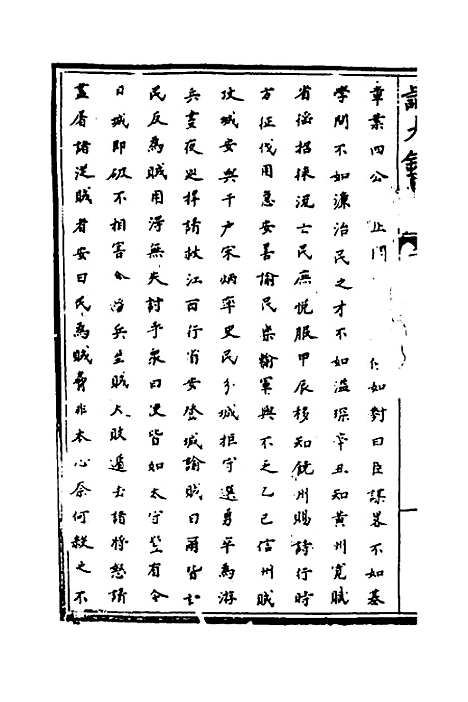 章葉四公　上問　　何如對曰臣謀畧不如基
學問不如濂治民之才不如溢琛辛丑知黃州寬賦
省徭招徠流士民庶悅服甲辰移知饒州賜詩行時
方征伐用急安善諭民樂輸軍興不乏乙巳信州賊
攻城安與千户宋炳率吏民分城拒守選勇平為游
兵晝夜廵捍請救江西行省安登城諭賊曰爾皆
民反為賊用得無失討乎衆曰使皆如太守豈有今
日城即破不相害　　兵至賊大敗遁去諸將怒請
盡屠諸從賊者安曰民為賊脅非本心奈何殺之不